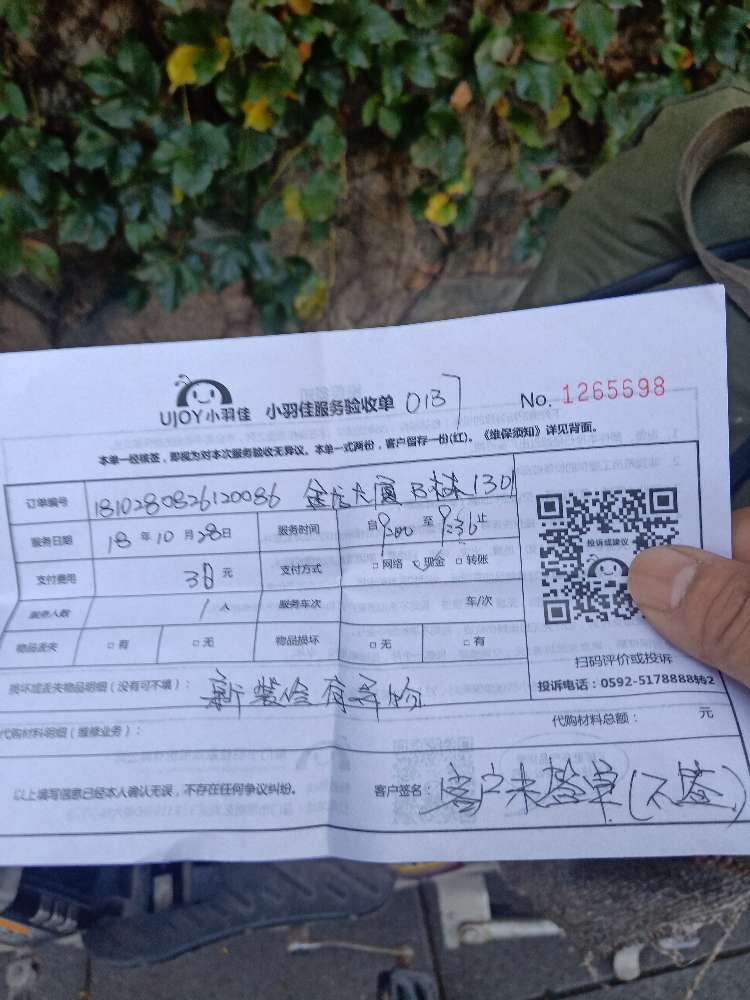 UJOY小羽佳 小羽佳服务验收单 013 No. 1265698
本单一经核签，即视为对本次服务验收无异议。本单一式两份，客户留存一份(红)。《维保须知》详见背面。
订单编号 1810280826120086 金龙大厦B栋1301
服务日期 18年10月28日 服务时间 自9:00至9:36止
支付费用 30元 支付方式 □网络 ☑现金 □转账
服务人数 1人 服务车次 车/次
物品丢失 □有 □无 物品损坏 □无 □有
投诉或建议
扫码评价或投诉
投诉电话：0592-5178888转2
损坏或丢失物品明细（没有可不填）： 新装修有异物
代购材料明细（维修业务）： 代购材料总额： 元
以上填写信息已经本人确认无误，不存在任何争议纠纷。 客户签名： 客户未签单(不签)